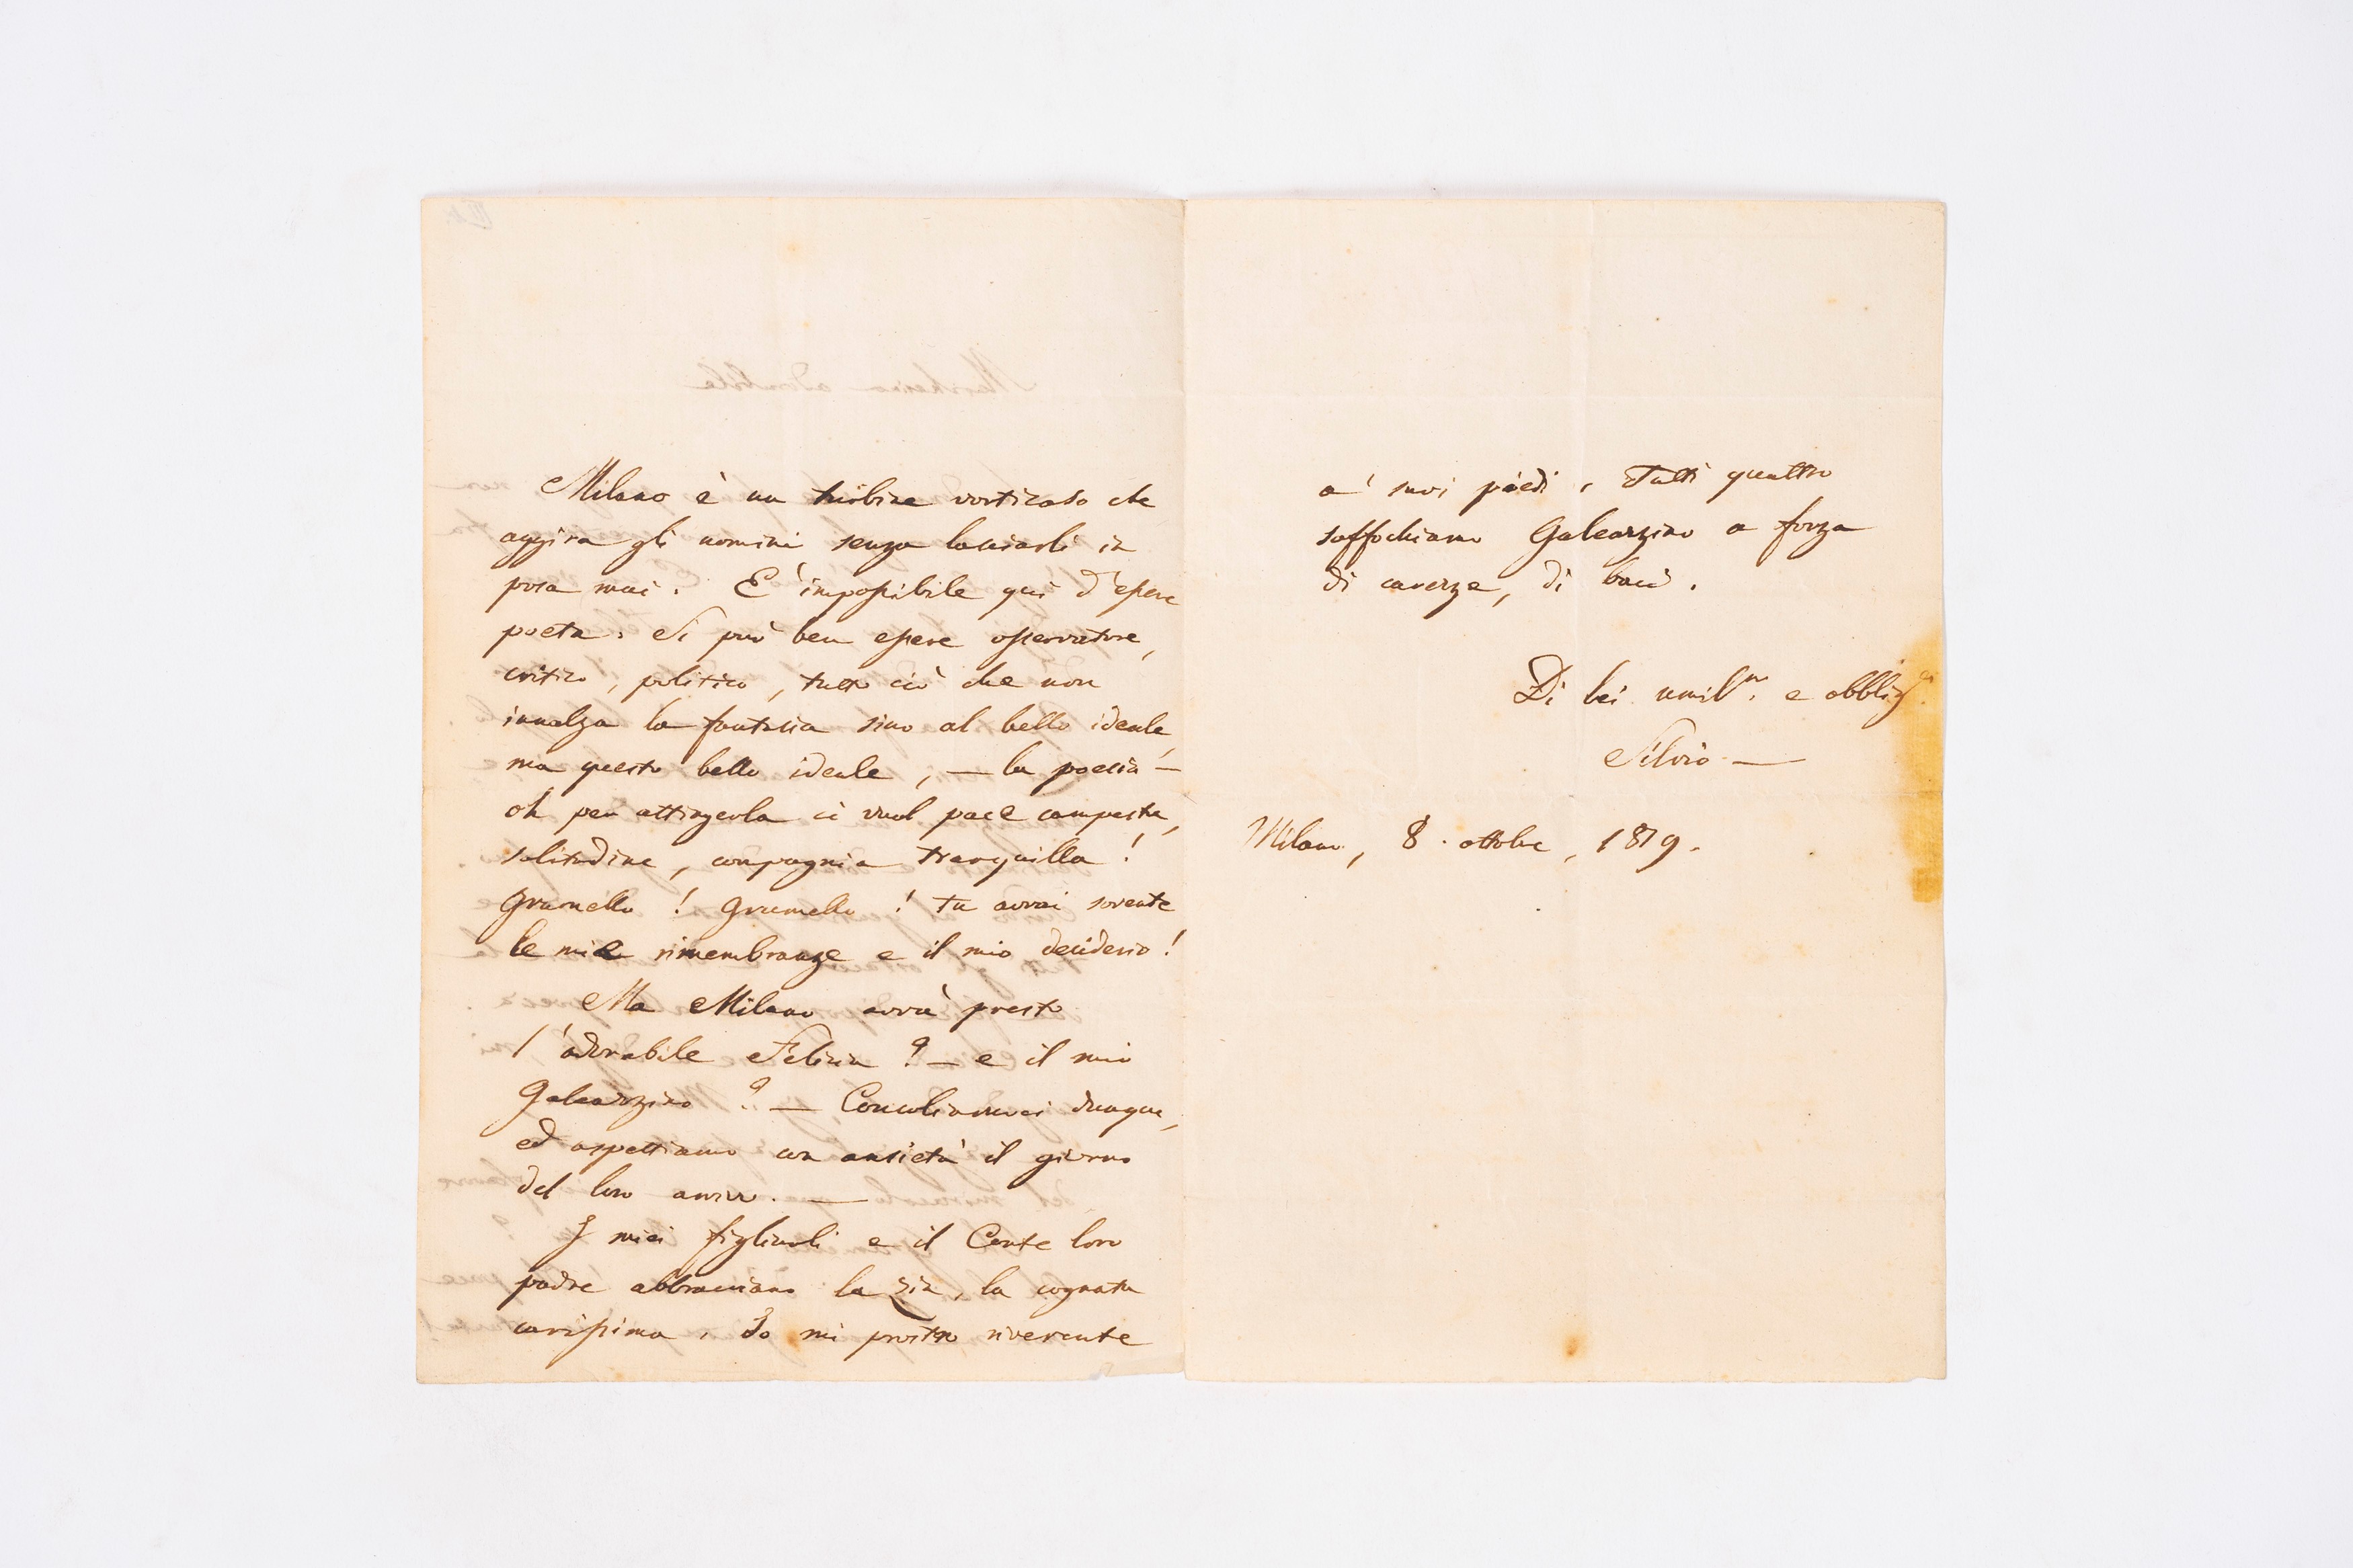 Milano è un turbine vorticoso che
aggira gli uomini senza lasciarli in
posa mai. E' impossibile qui d'essere
poeta. Si può ben essere osservatore,
critico, politico, tutto ciò che non
innalza la fantasia sino al bello ideale,
ma questo bello ideale, — la poesia —
oh per attingerla ci vuol pace campestre,
solitudine, compagnia tranquilla!
Grumello! Grumello! tu avrai sovente
le mie rimembranze e il mio desiderio!
Ma Milano avrà presto
l'adorabile Felicia? — e il mio
Galeazzino? — Consoliamoci dunque,
ed aspettiamo con ansietà il giorno
del loro arrivo. —
I miei figliuoli e il Conte loro
padre abbracciano la zia, la cognata
carissima. Io mi prostro riverente
a' suoi piedi. Tutti quattro
soffochiamo Galeazzino a forza
di carezze, di baci.
Di lei umil.<sup>mo</sup> e obblig.<sup>o</sup>
Silvio —
Milano, 8. ottobre, 1819.